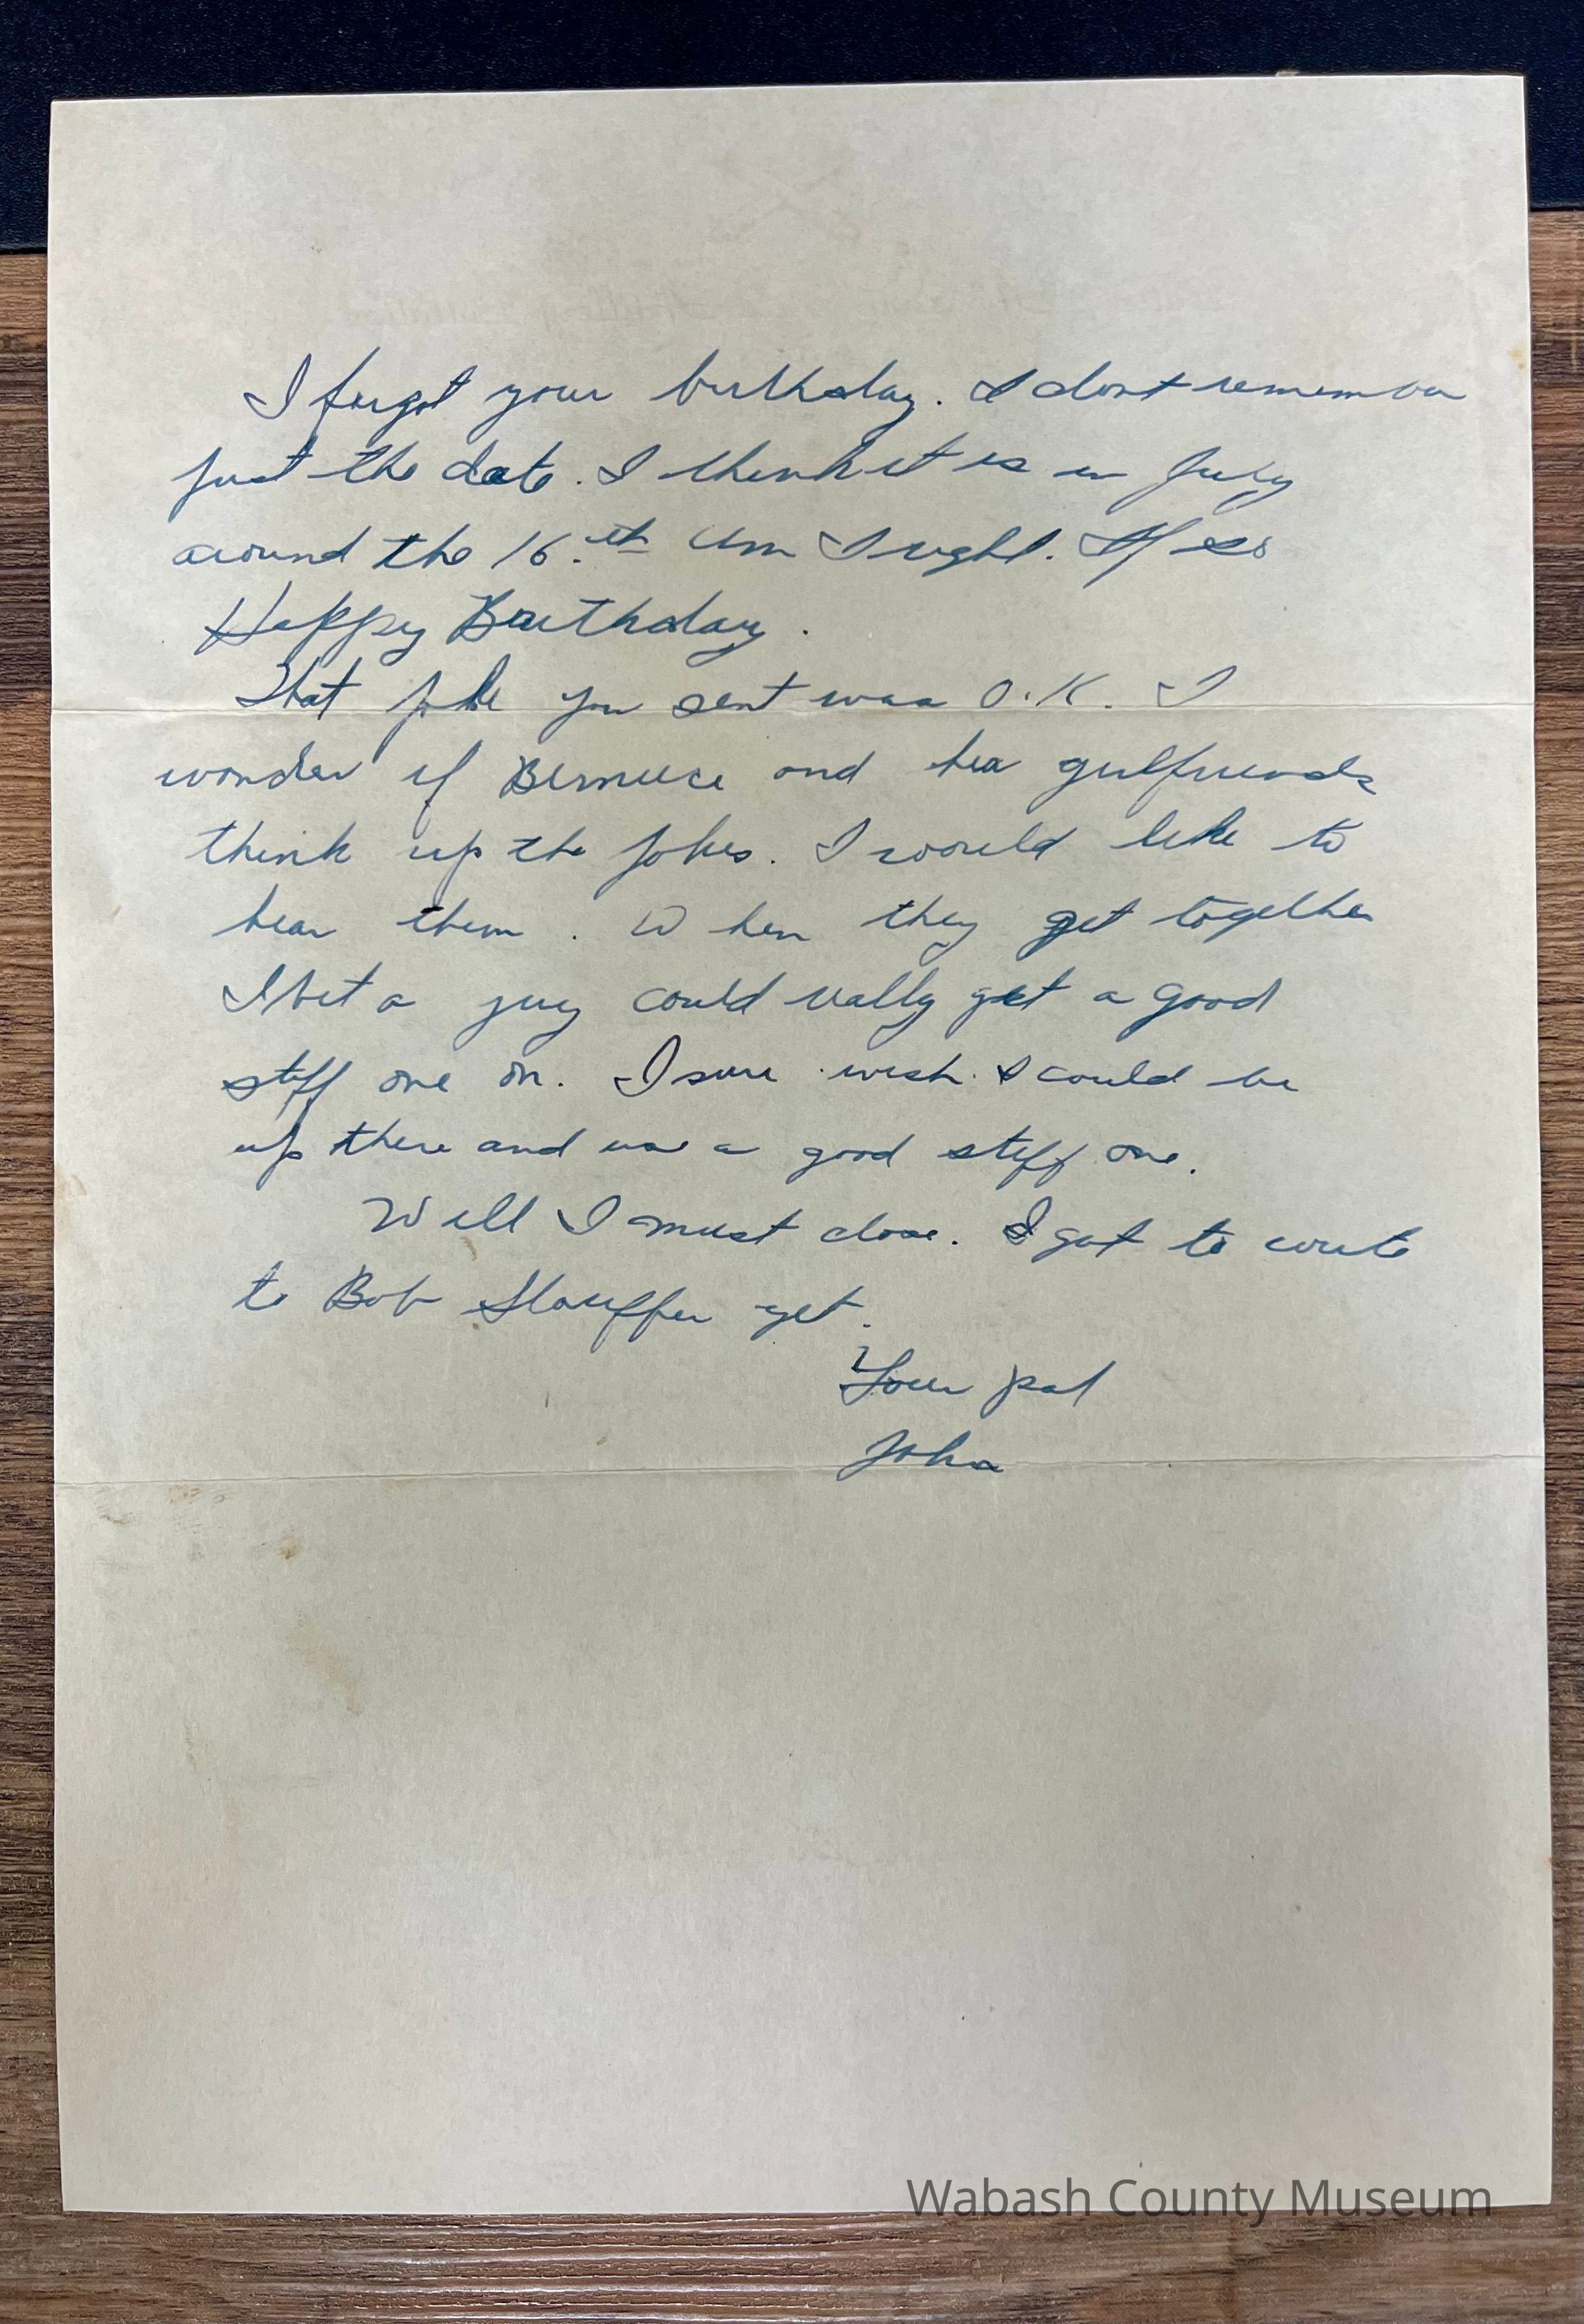 I forgot your birthday. I dont remember
just the date. I think it is in July
around the 16.th Am I right. If so
Happy Birthday.
That joke you sent was O.K. I
wonder if Berniece and her girlfriends
think up the jokes. I would like to
hear them. When they get together
I bet a guy could really get a good
stiff one on. I sure wish I could be
up there and use a good stiff one.
Well I must close. I got to write
to Bob Stouffer yet.
Your pal
John
Wabash County Museum